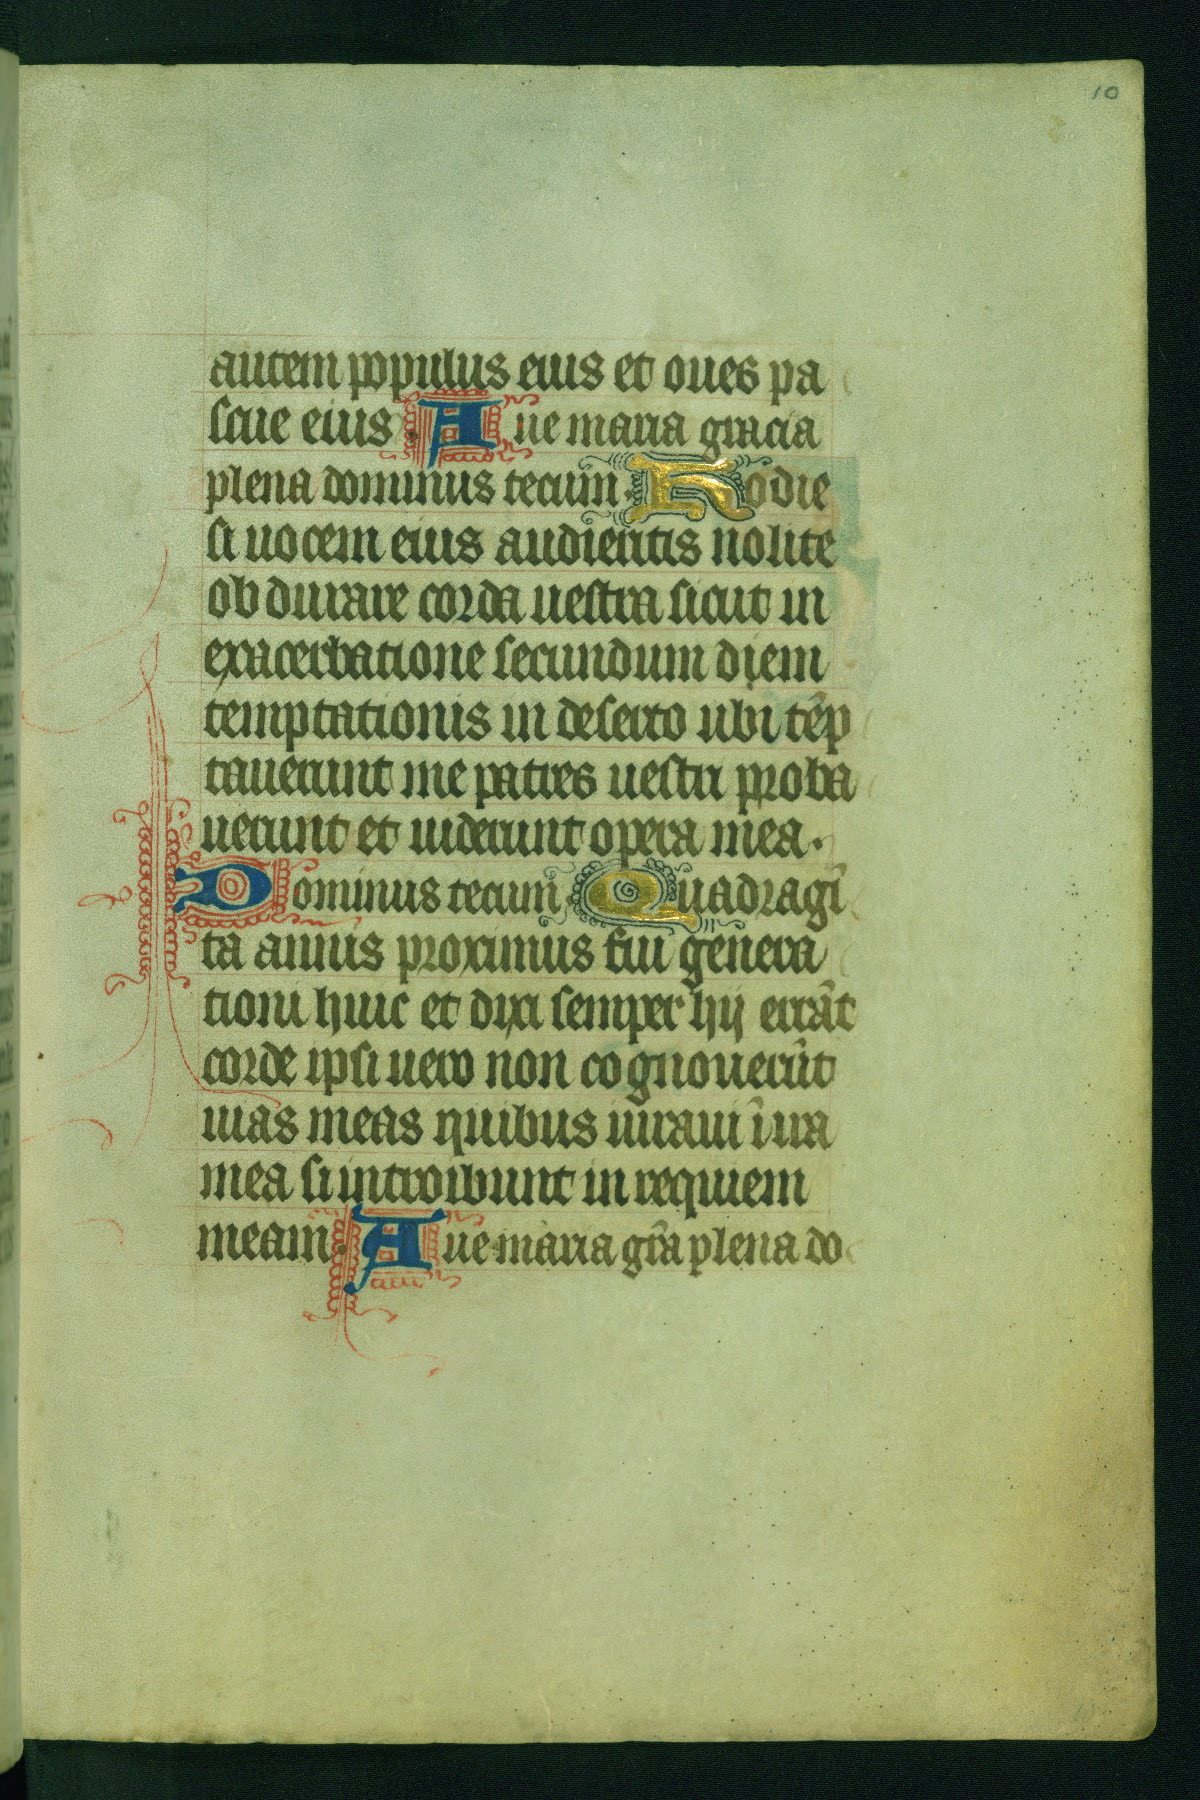 10
autem populus eius et oues pa
scue eius. Aue maria gracia
plena dominus tecum. Hodie
si uocem eius audieritis nolite
ob durare corda uestra sicut in
exacerbatione secundum diem
temptationis in deserto ubi tēp
tauerunt me patres uestri proba
uerunt et uiderunt opera mea.
Dominus tecum Quadragī
ta annis proximus fui genera
tioni huic et dixi semper hij errāt
corde ipsi uero non cognouerūt
uias meas quibus iuraui ī ira
mea si introibunt in requiem
meam. Aue maria gr̄a plena do